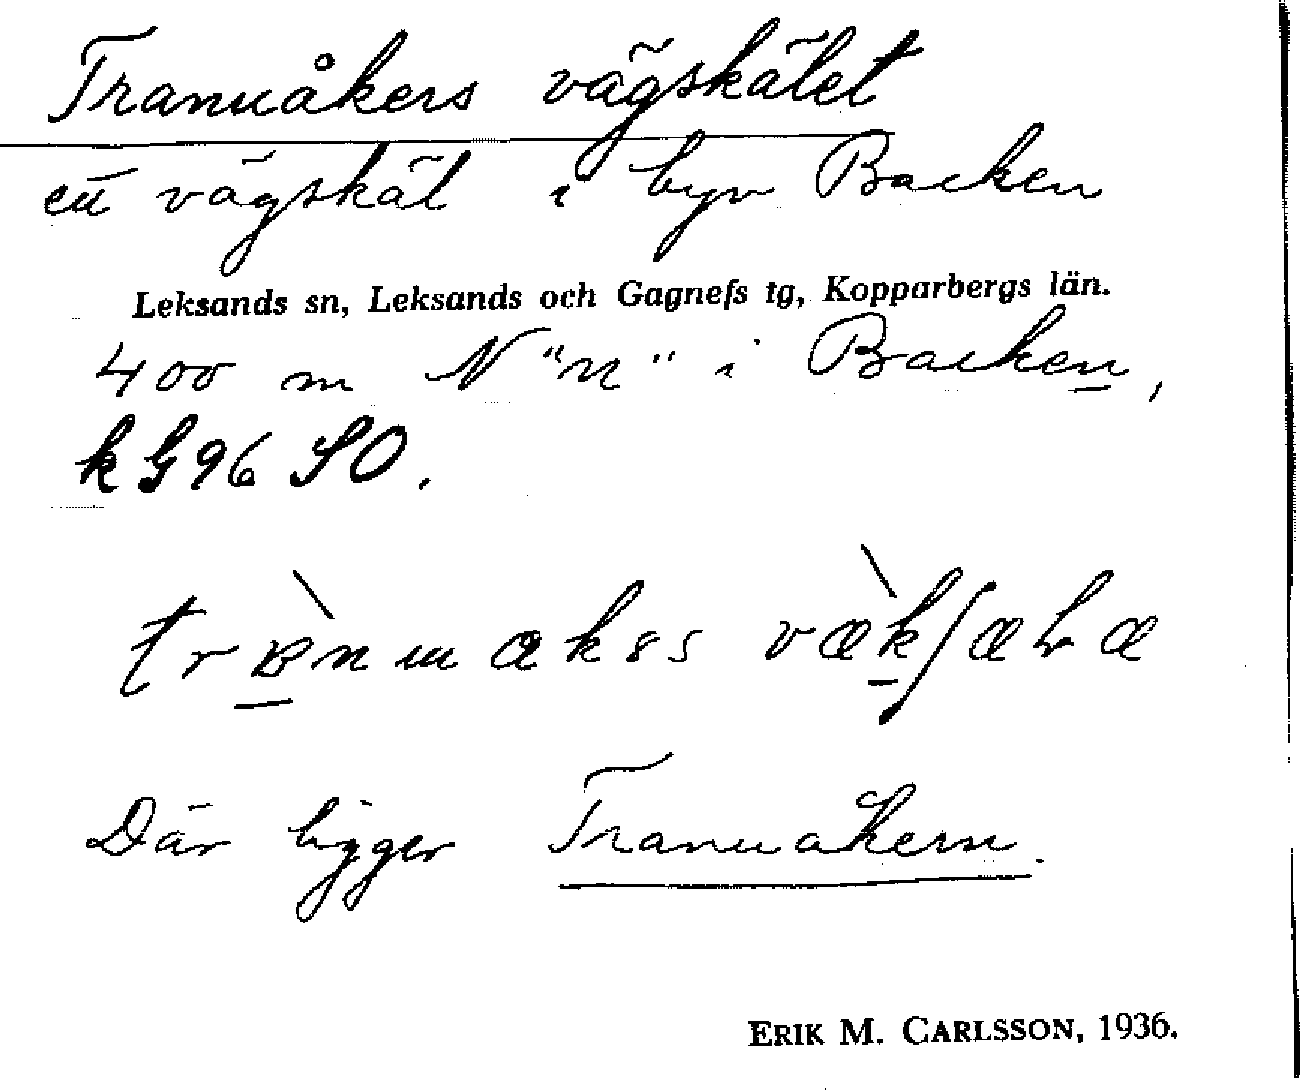 Tranuåkers vägskälet
ett vägskäl i byn Backen
Leksands sn, Leksands och Gagnefs tg, Kopparbergs län.
400 m N "n" i Backen,
kG96 SO.
Där ligger Tranuåkern.
ERIK M. CARLSSON, 1936.